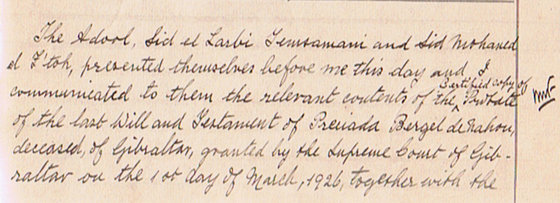 The Adool, Sid el Larbi Temsamani and Sid Mohamed
el F'toh, presented themselves before me this day and I
certified copy of
communicated to them the relevant contents of the ^ Probate
of the last Will and Testament of Preciada Bergel de Nahon,
deceased, of Gibraltar, granted by the Supreme Court of Gib-
raltar on the 1st day of March, 1926, together with the